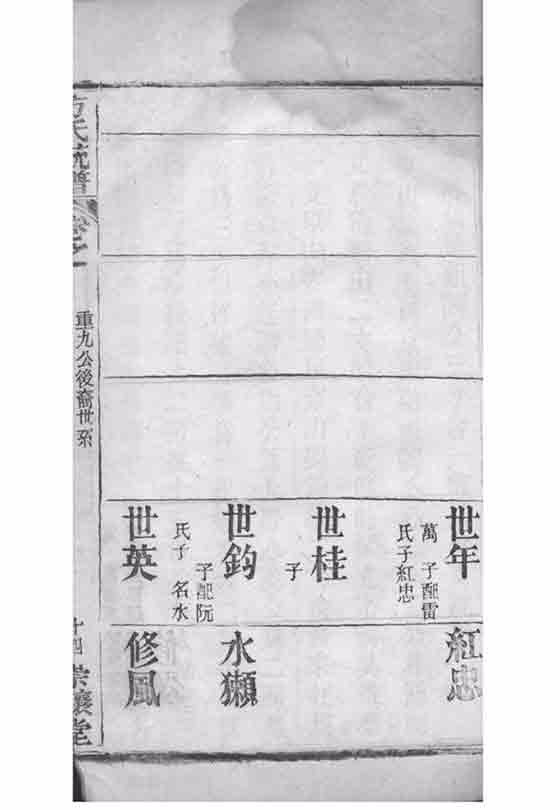 世年
萬 子配雷
氏子紅忠
世桂
子
世鈞
子配阮
氏子 名水
世英
紅忠
水獺
修風
方氏統譜
卷之一
重九公後裔世系
十四